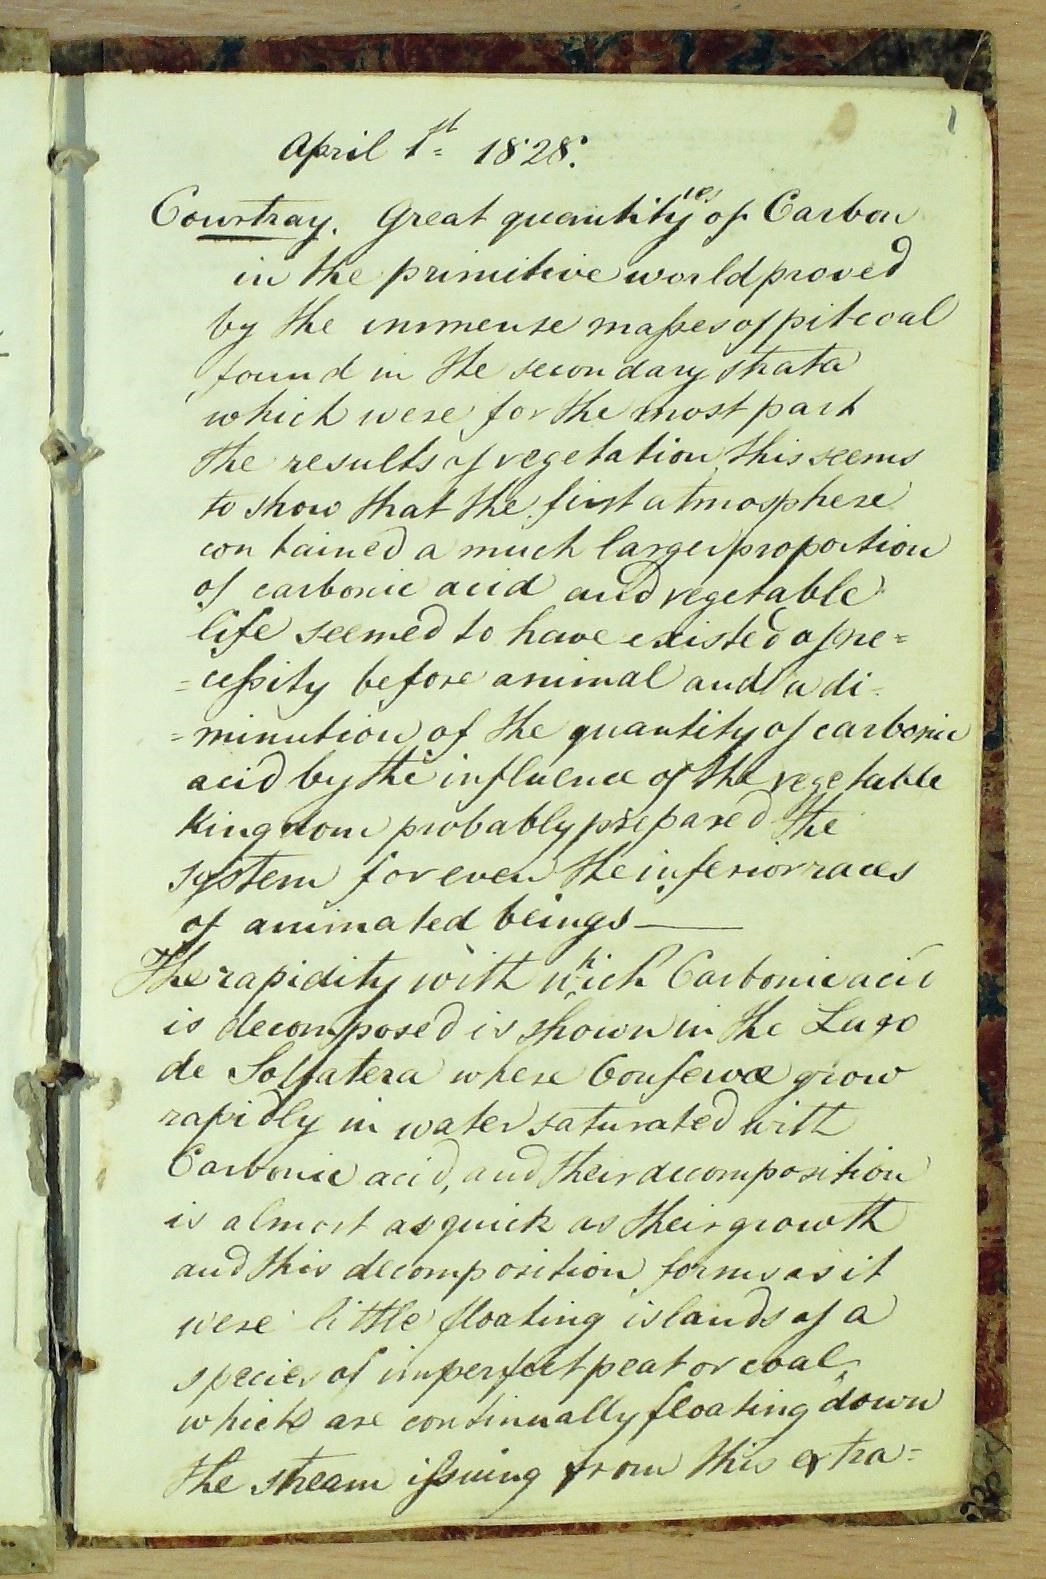 1
April 1st 1828.
Courtray. Great quantityies of Carbon
in the primitive world proved
by the immense masses of pit coal
found in the secondary strata
which were for the most part
the results of vegetation, this seems
to show that the first atmosphere
contained a much larger proportion
of carbonic acid and vegetable
life seemed to have existed of ne=
=cessity before animal and a di-
=minution of the quantity of carbonic
acid by the influence of the vegetable
Kingdom probably prepared the
system for even the inferior races
of animated beings—
The rapidity with which Carbonic acid
is decomposed is shown in the Lago
de Solfatera where Confervæ grow
rapidly in water saturated with
Carbonic acid, and their decomposition
is almost as quick as their growth
and this decomposition forms as it
were little floating islands of a
species of imperfect peat or coal,
which are continually floating down
the stream issuing from this extra=